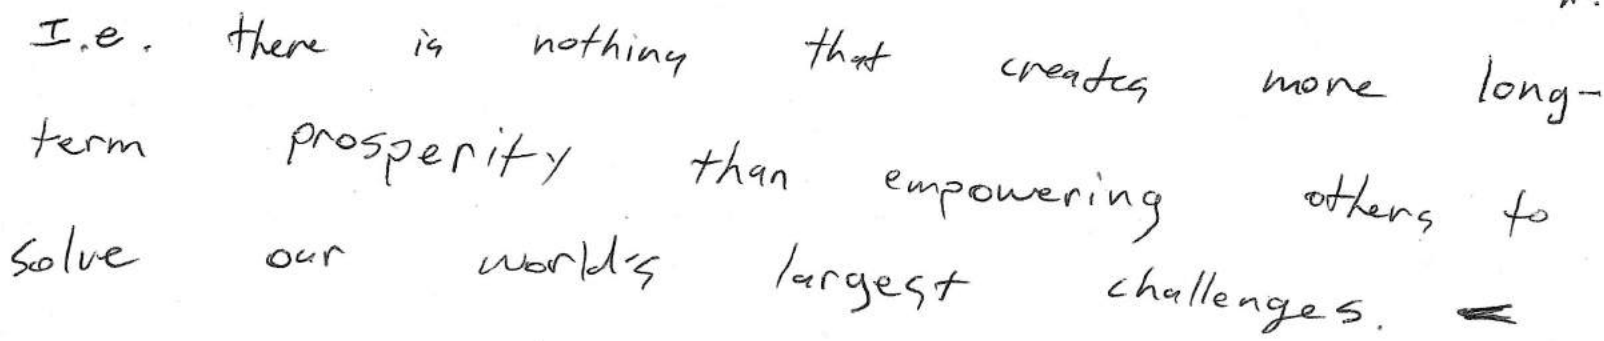 I.e. there is nothing that creates more long-
term prosperity than empowering others to
solve our world's largest challenges.